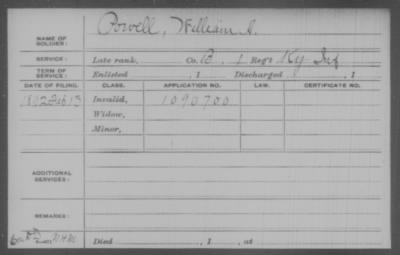 NAME OF SOLDIER: Powell, William
SERVICE: Late rank, Co. B, 1 Reg't Ky Inf
TERM OF SERVICE: Enlisted , 1 Discharged , 1
DATE OF FILING. CLASS. APPLICATION NO. LAW. CERTIFICATE NO.
Invalid, 1090700
Widow,
Minor,
ADDITIONAL SERVICES:
REMARKS:
Died , 1 , at